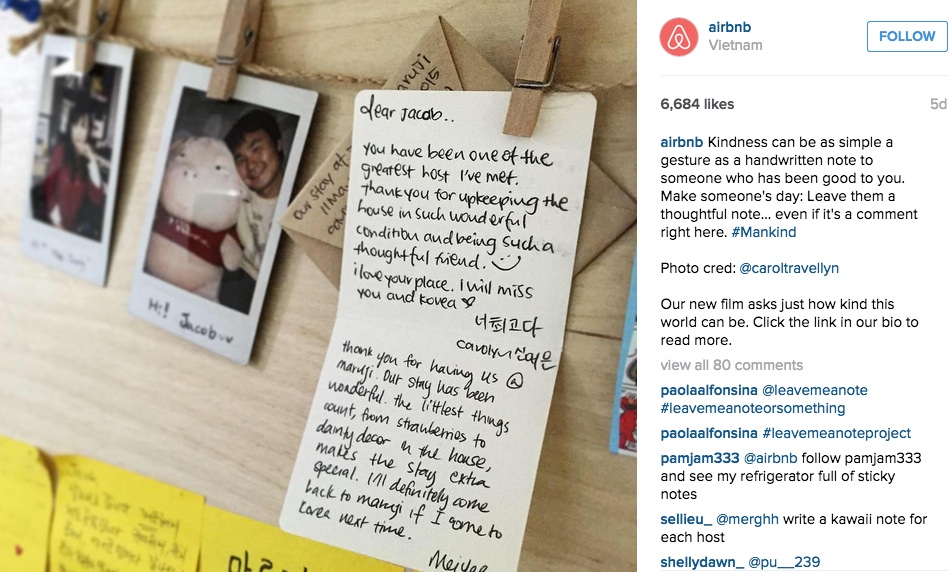 airbnb
Vietnam
FOLLOW
6,684 likes
5d
airbnb Kindness can be as simple a
gesture as a handwritten note to
someone who has been good to you.
Make someone's day: Leave them a
thoughtful note... even if it's a comment
right here. #Mankind
Photo cred: @caroltravellyn
Our new film asks just how kind this
world can be. Click the link in our bio to
read more.
view all 80 comments
paolaalfonsina @leavemeanote
#leavemeanoteorsomething
paolaalfonsina #leavemeanoteproject
pamjam333 @airbnb follow pamjam333
and see my refrigerator full of sticky
notes
sellieu_ @merghh write a kawaii note for
each host
shellydawn_ @pu__239
Hi! Jacob
our stay at
2015
dear Jacob..
you have been one of the
greatest host I've met.
Thank you for upkeeping the
house in such wonderful
condition and being such a
thoughtful friend.
i love your place. I will miss
you and korea
너 최고다
thank you for having us @
maruji. Our stay has been
wonderful. the littlest things
count, from strawberries to
dainty decor in the house,
makes the stay extra
special. I'll definitely come
back to maruji if I come to
korea next time.